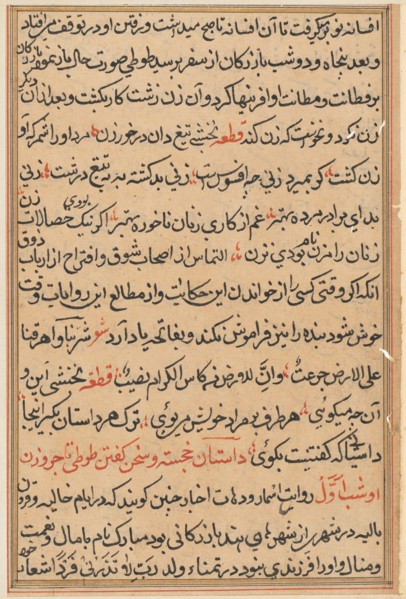 افسانه نو برگرفت تا آن افسانه تا صبح میداشت و رفتن او در توقف می افتاد
و بعد پنجاه و دو شب بازرگان از سفر برسید طوطی صورت حال باز نمود بازرگان
بر فطانت و مطانت او آفرینها کرد و آن زن زشت کار بکشت و بعد از آن دیگر
زن نکرد و نخواست که زن کند قطعه نخشبی تیغ دان در خور زن مرد او را شمر که او
زن کشت کر بمیرد زنی چه افسوس است زنی بد کشته به به تیغ درشت زنی
بد ای برادر مرده بهتر غم از کاری زنان ناخورده بهتر اگر نیک بودی خصالات زن
زنان را مزن نام بودی نزن التماس از اصحاب شوق و اقتراح از ارباب ذوق
آنکه اگر وقتی کسی را از خواندن این حکایت و از مطالع این روایات وقت
خوش شود بنده را نیز فراموش نکند و بفاتحه یاد آرد شعر شربنا و اهرقنا
علی الارض جرعت و للارض من کاس الکرام نصیب قطعه نخشبی این و
آن چه میکویی هر طرف بر مراد خویش مپوی ترک هر داستان بگیر اینجا
داستانی که گفتنیست بگوی داستان خجسته و سخن گفتن طوطی تا جر و زن
او شب اول روایع اسمار و دهات اخبار چنین گویند که در ایام خالیه و قرون
بالیه در شهر از شهرهای هند بازرگانی بود مبارک نام با مال و نعمت
و منال و او را فرزندی نبود در تمناء ولد رب لا تذرنی فردا اشعات